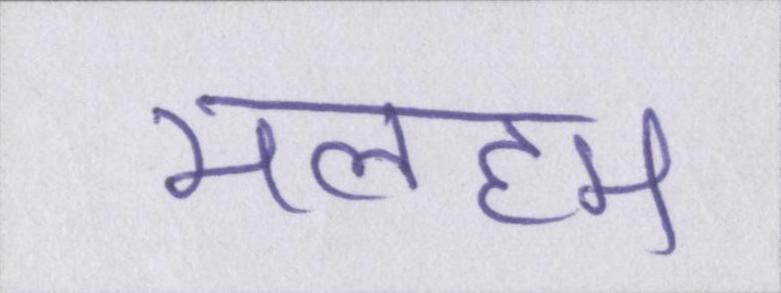 मलहम